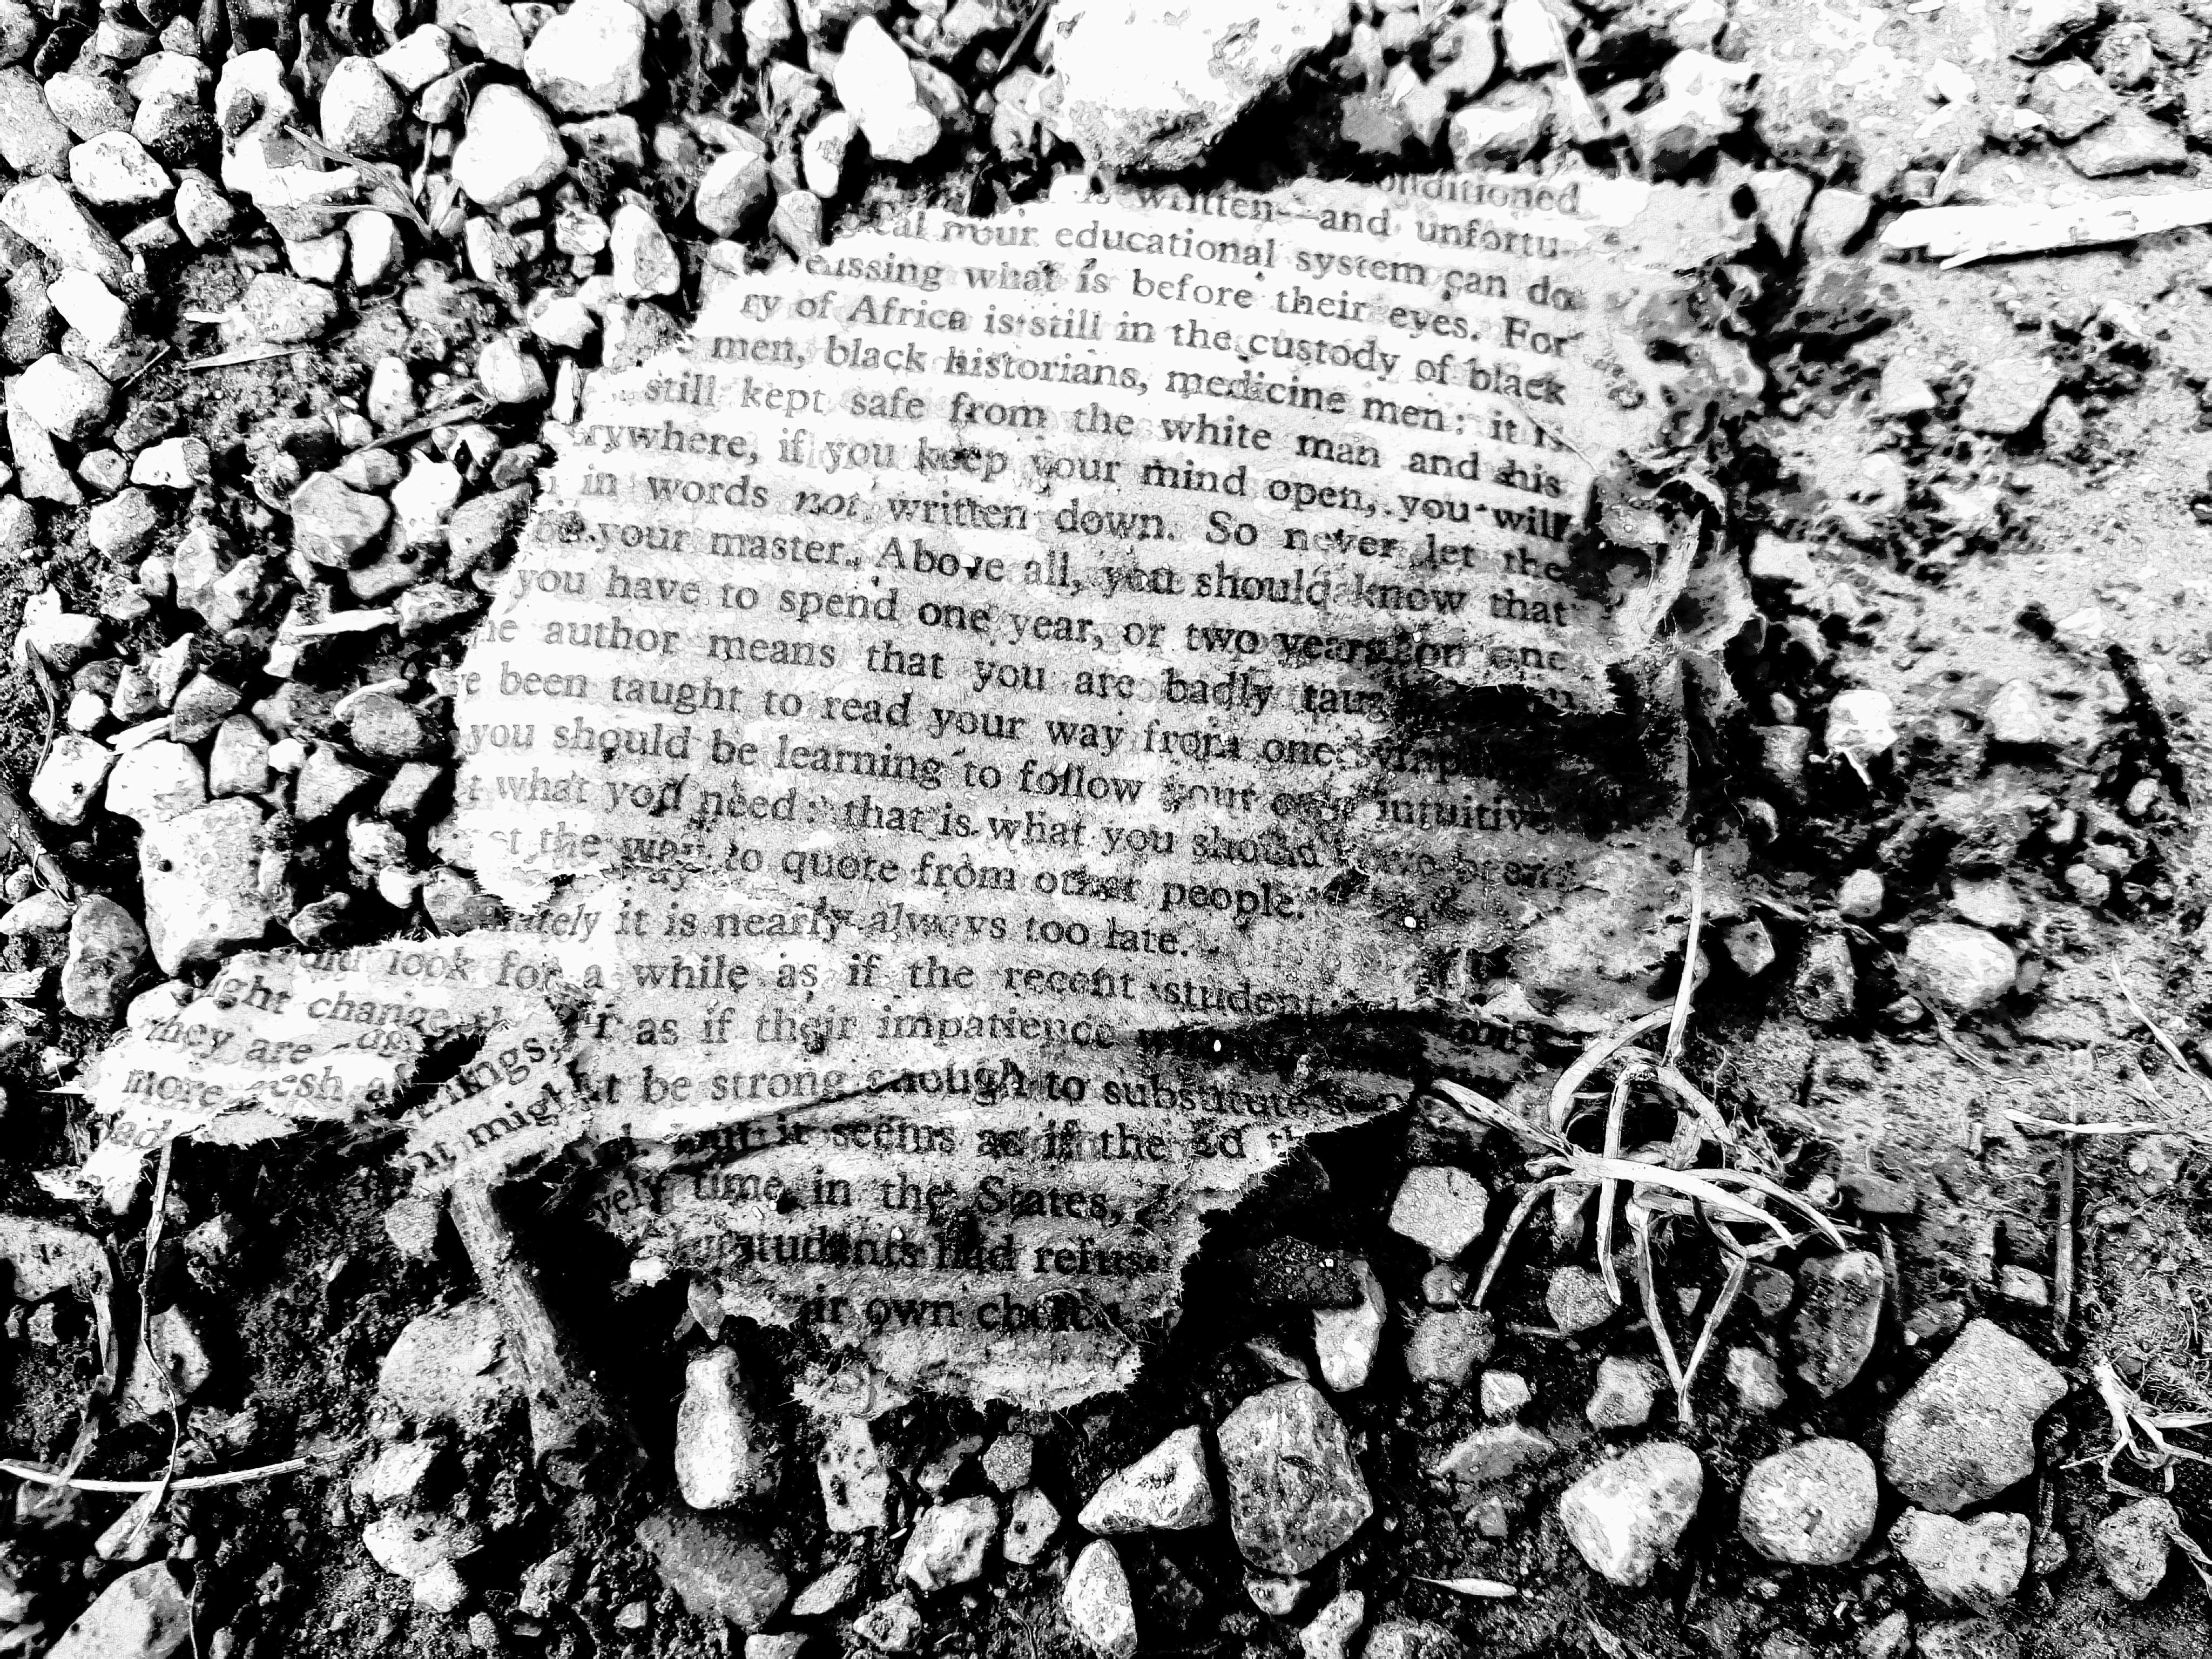 onditioned
is written—and unfortu-
our educational system can do
issing what is before their eyes. For
ry of Africa is still in the custody of black
men, black historians, medicine men: it is
still kept safe from the white man and his
rywhere, if you keep your mind open, you will
in words not written down. So never let the
be your master. Above all, you should know that
you have to spend one year, or two years on one
he author means that you are badly taug
e been taught to read your way from one
you should be learning to follow your own intuitive
t what you need: that is what you should
the way to quote from other people.
nately it is nearly always too late.
look for a while as if the recent student
ight change as if their impatience
they are
rings,
more esh
it might be strong enough to substitute
it seems as if the
vely time in the States,
students had refus
ir own choice